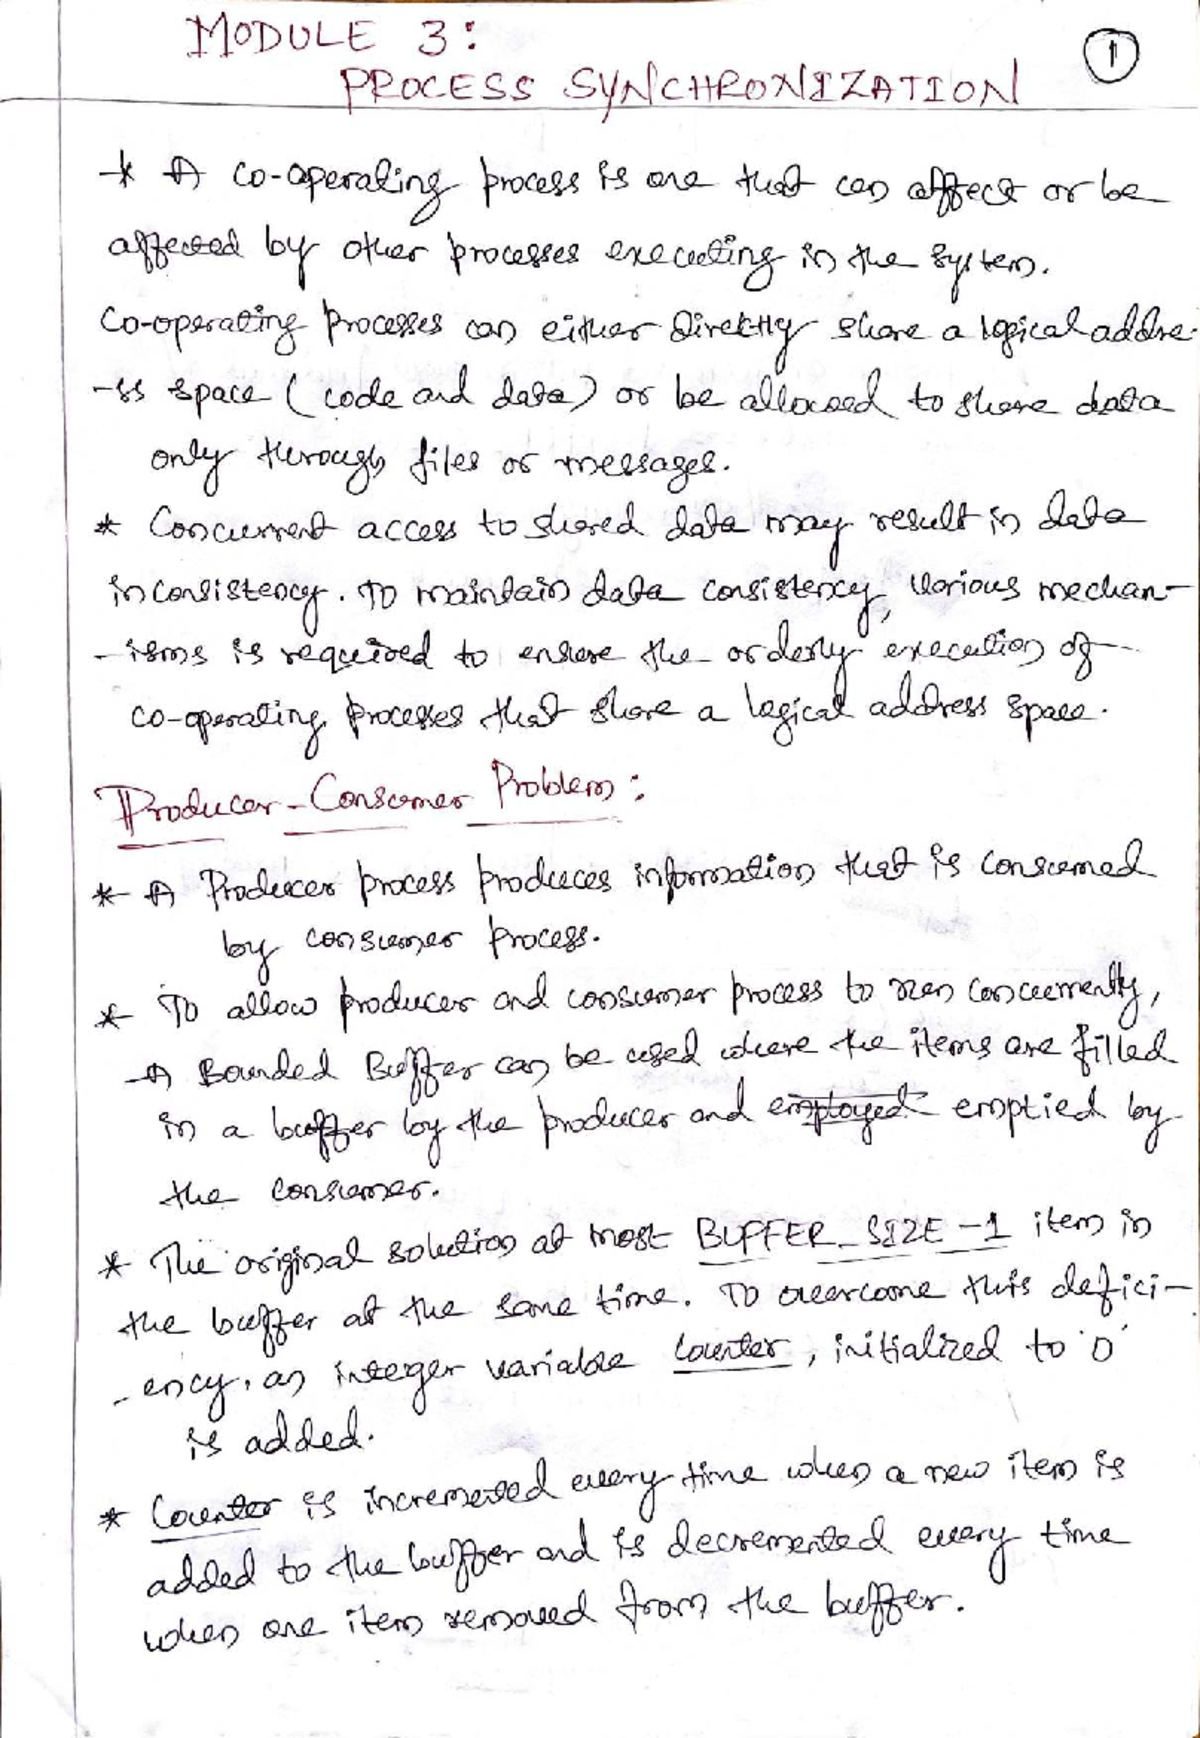 MODULE 3:
1
PROCESS SYNCHRONIZATION
* A co-operating process is one that can affect or be
affected by other processes executing in the system.
Co-operating processes can either directly share a logical addre-
-ss space (code and data) or be allowed to share data
only through files or messages.
* Concurrent access to shared data may result in data
inconsistency. To maintain data consistency, various mechan-
-isms is required to ensure the orderly execution of
co-operating processes that share a logical address space.
Producer-Consumer Problem:
* A Producer process produces information that is consumed
by consumer process.
* To allow producer and consumer process to run concurrently,
A Bounded Buffer can be used where the items are filled
in a buffer by the producer and employed emptied by
the consumer.
* The original solution at most BUFFER_SIZE-1 item in
the buffer at the same time. To overcome this defici-
-ency, an integer variable Counter, initialized to '0'
is added.
* Counter is incremented every time when a new item is
added to the buffer and is decremented every time
when one item removed from the buffer.